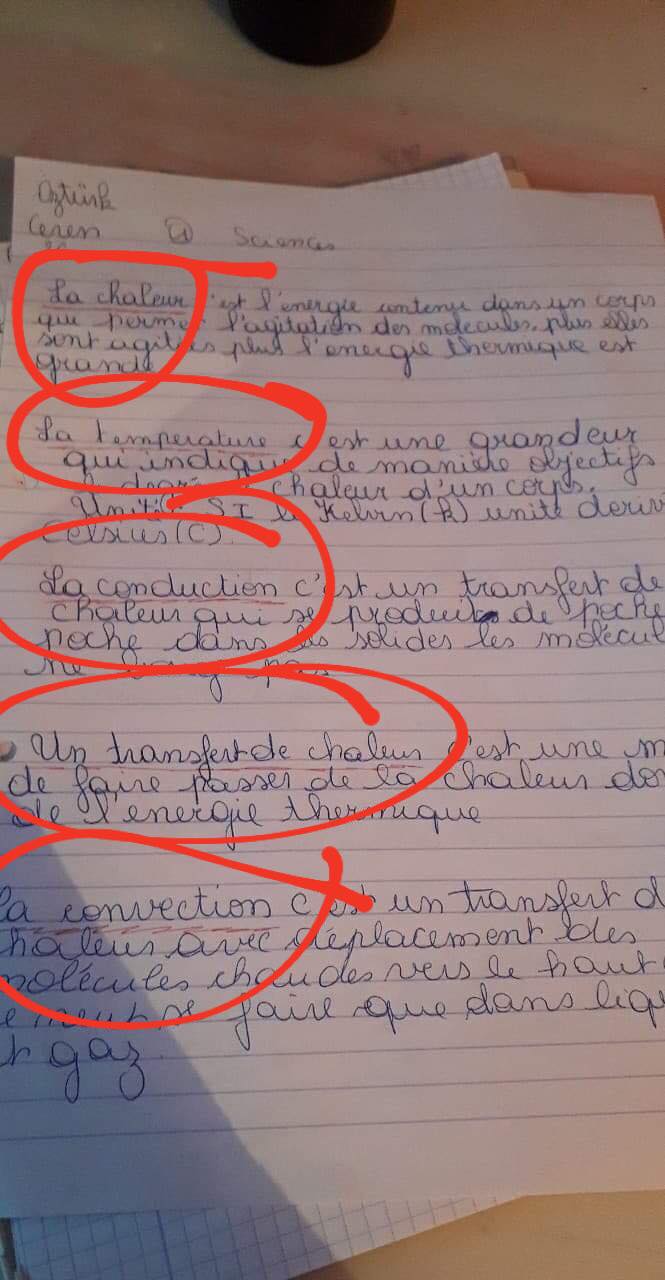 Öztürk
Ceren ① Sciences
La chaleur c'est l'energie contenu dans un corps
que permet l'agitation des molecules. plus elles
sont agités plus l'energie thermique est
grande
La temperature c'est une grandeur
qui indique de manière objectifs
chaleur d'un corps.
Unité SI le Kelvin (K) unité deriv
Celsius (C).
La conduction c'est un transfert de
chaleur qui se produit de poche
poche dans les solides les molécul
ne pas
Un transfert de chaleur c'est une m
de faire passer de la chaleur don
de l'energie thermique
la convection c'est un transfert d
haleur avec déplacement des
molécules chaudes vers le haut
se faire que dans liqu
gaz.